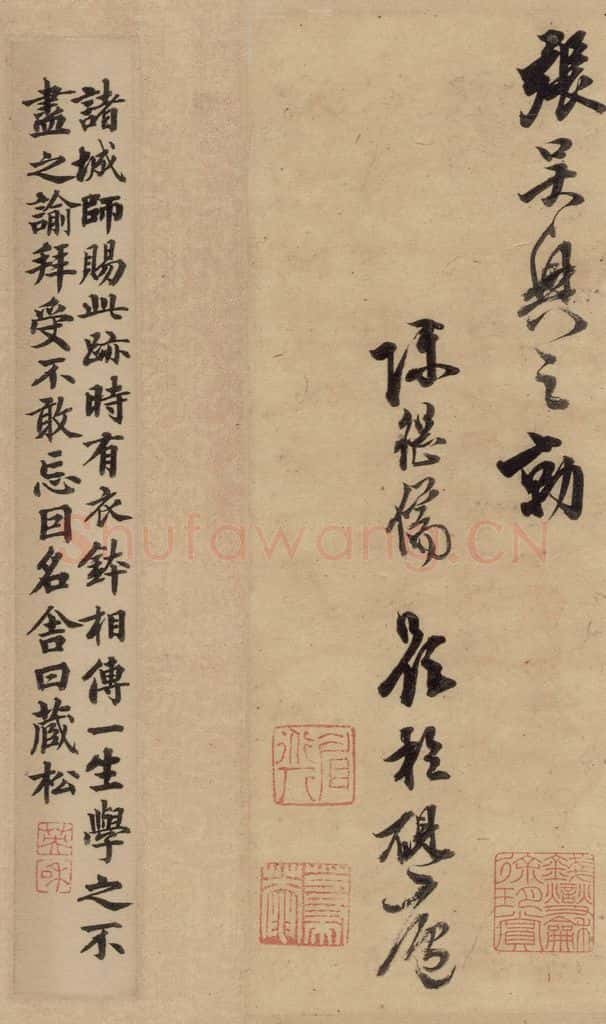 張吳興之勍
陳繼儒題於硯廬
諸城師賜此跡時有衣鉢相傳一生學之不
盡之諭拜受不敢忘因名舍曰藏松
Shufawang.CN